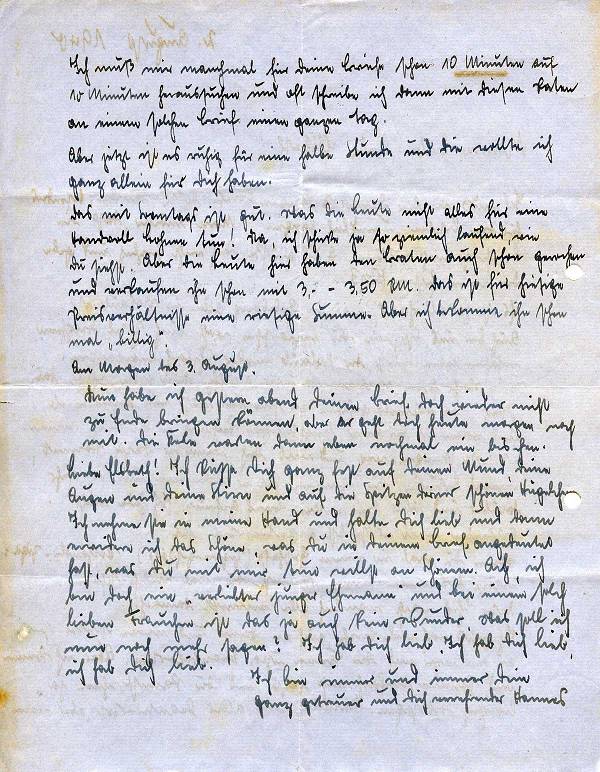 Ich muß mir manchmal für Deine Briefe schon 10 Minuten auf
10 Minuten heraussuchen und oft schreibe ich dann mit diesen Raten
an einem solchen Brief einen ganzen Tag.
Aber jetzt ist es ruhig für eine halbe Stunde und die wollte ich
ganz allein für Dich haben.
Das mit Sonntags ist gut. Was die Leute nicht alles für eine
Handvoll Bohnen tun! Na, ich schicke ja so ziemlich laufend, wie
Du siehst. Aber die Leute hier haben den Braten auch schon gerochen
und verkaufen ihn schon mit 3,- - 3,50 RM. Das ist für hiesige
Preisverhältnisse eine riesige Summe. Aber ich bekomme ihn schon
mal „billig".
Am Morgen des 3. August.
Nun habe ich gestern abend Deinen Brief doch wieder nicht
zu Ende bringen können, aber er geht doch heute morgen noch
mit. Die Kerle warten dann eben nochmal ein bißchen.
Liebe Elsbeth! Ich küsse Dich ganz fest auf Deinen Mund, Deine
Augen und Deine Stirn und auf die Spitzen Deiner schönen Hügelchen.
Ich nehme sie in meine Hand und halte Dich lieb und dann
ich das Schöne, was Du in Deinem Brief angedeutet
hast, was Du mit mir tun willst an Schönem. Ach, ich
bin doch ein „verliebter junger Ehemann" und bei einem solch
lieben Frauchen ist das ja auch kein Wunder. Was soll ich
nun noch mehr sagen? Ich hab Dich lieb, Ich hab Dich lieb,
ich hab Dich lieb.
Ich bin immer und immer Dein
ganz getreuer und Dich Hannes